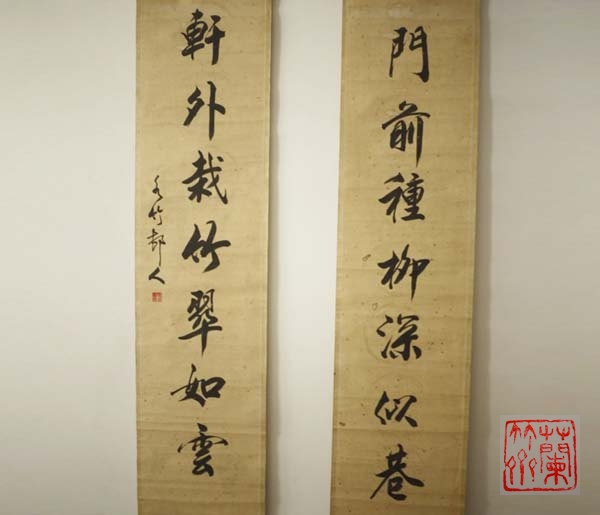 門前種柳深似巷
軒外栽竹翠如雲
水竹邨人
蘭